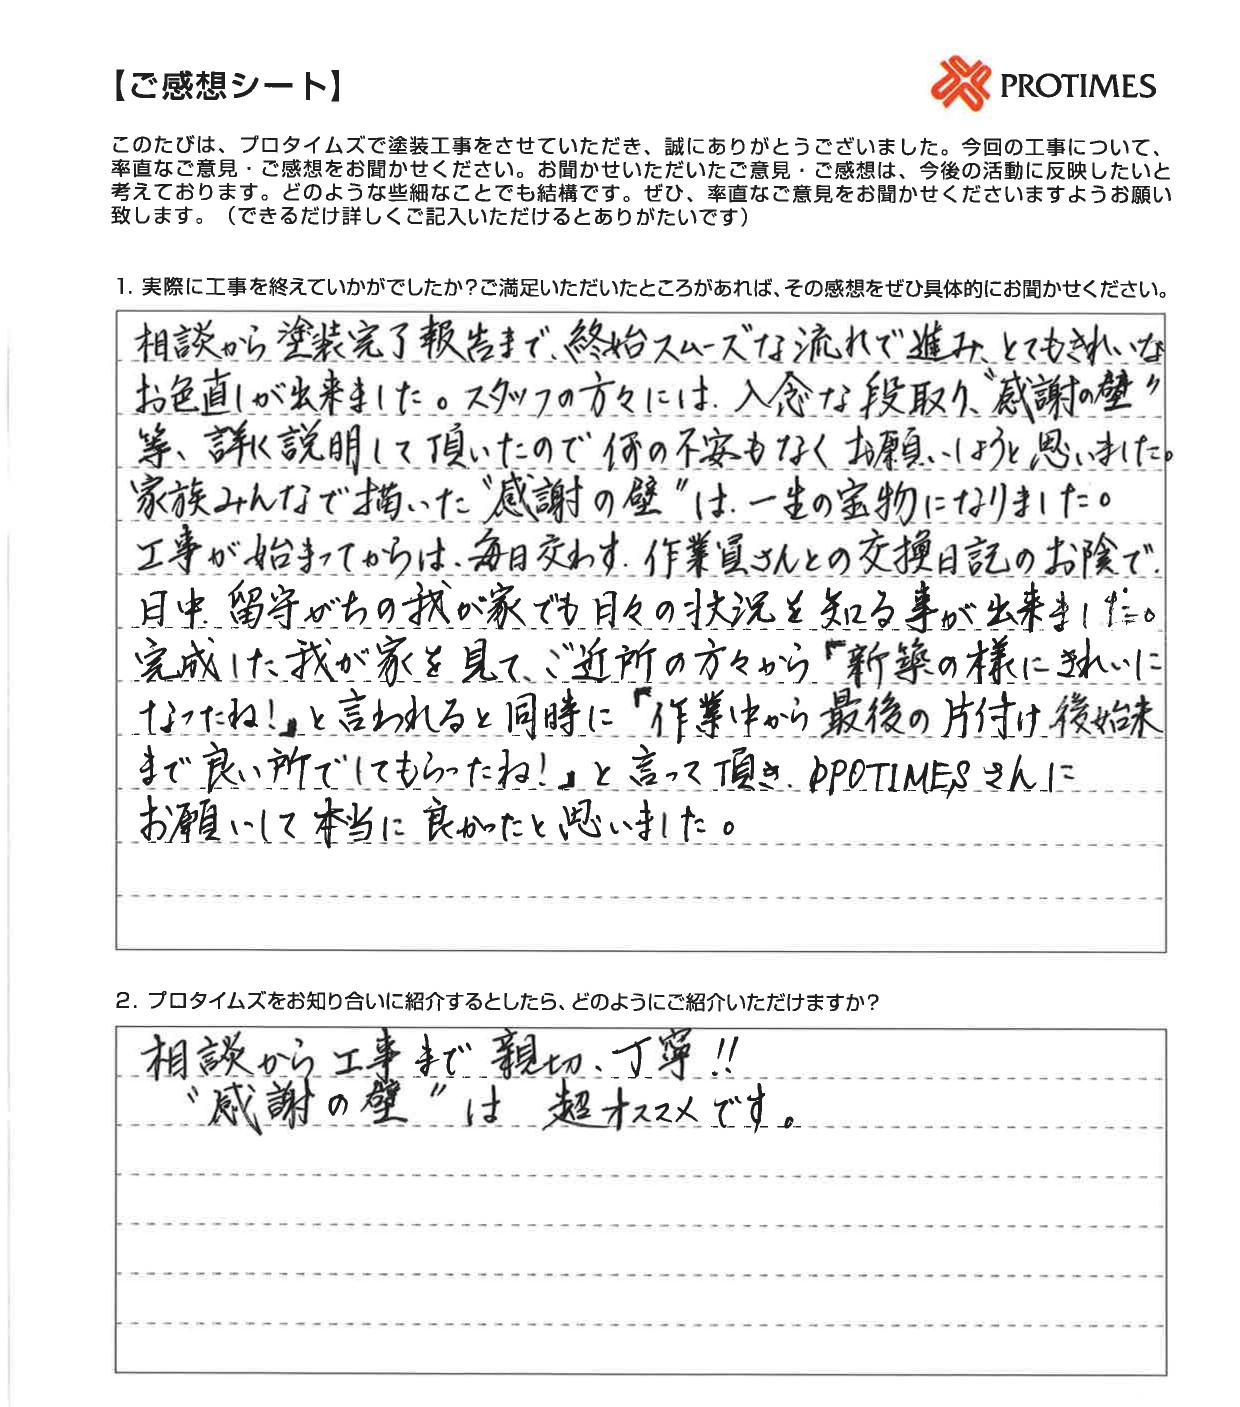 【ご感想シート】
PROTIMES
このたびは、プロタイムズで塗装工事をさせていただき、誠にありがとうございました。今回の工事について、
率直なご意見・ご感想をお聞かせください。お聞かせいただいたご意見・ご感想は、今後の活動に反映したいと
考えております。どのような些細なことでも結構です。ぜひ、率直なご意見をお聞かせくださいますようお願い
致します。（できるだけ詳しくご記入いただけるとありがたいです）
1. 実際に工事を終えていかがでしたか？ご満足いただいたところがあれば、その感想をぜひ具体的にお聞かせください。
相談から塗装完了報告まで、終始スムーズな流れで進み、とてもきれいな
お色直しが出来ました。スタッフの方々には、入念な段取り、“感謝の壁”
等、詳しく説明して頂いたので何の不安もなくお願いしようと思いました。
家族みんなで描いた“感謝の壁”は、一生の宝物になりました。
工事が始まってからは、毎日交わす、作業員さんとの交換日記のお陰で、
日中、留守がちの我が家でも日々の状況を知る事が出来ました。
完成した我が家を見て、ご近所の方々から『新築の様にきれいに
なったね！』と言われると同時に『作業中から最後の片付け、後始末
まで良い所でしてもらったね！』と言って頂き、PROTIMESさんに
お願いして本当に良かったと思いました。
2. プロタイムズをお知り合いに紹介するとしたら、どのようにご紹介いただけますか？
相談から工事まで親切、丁寧!!
“感謝の壁”は 超オススメです。